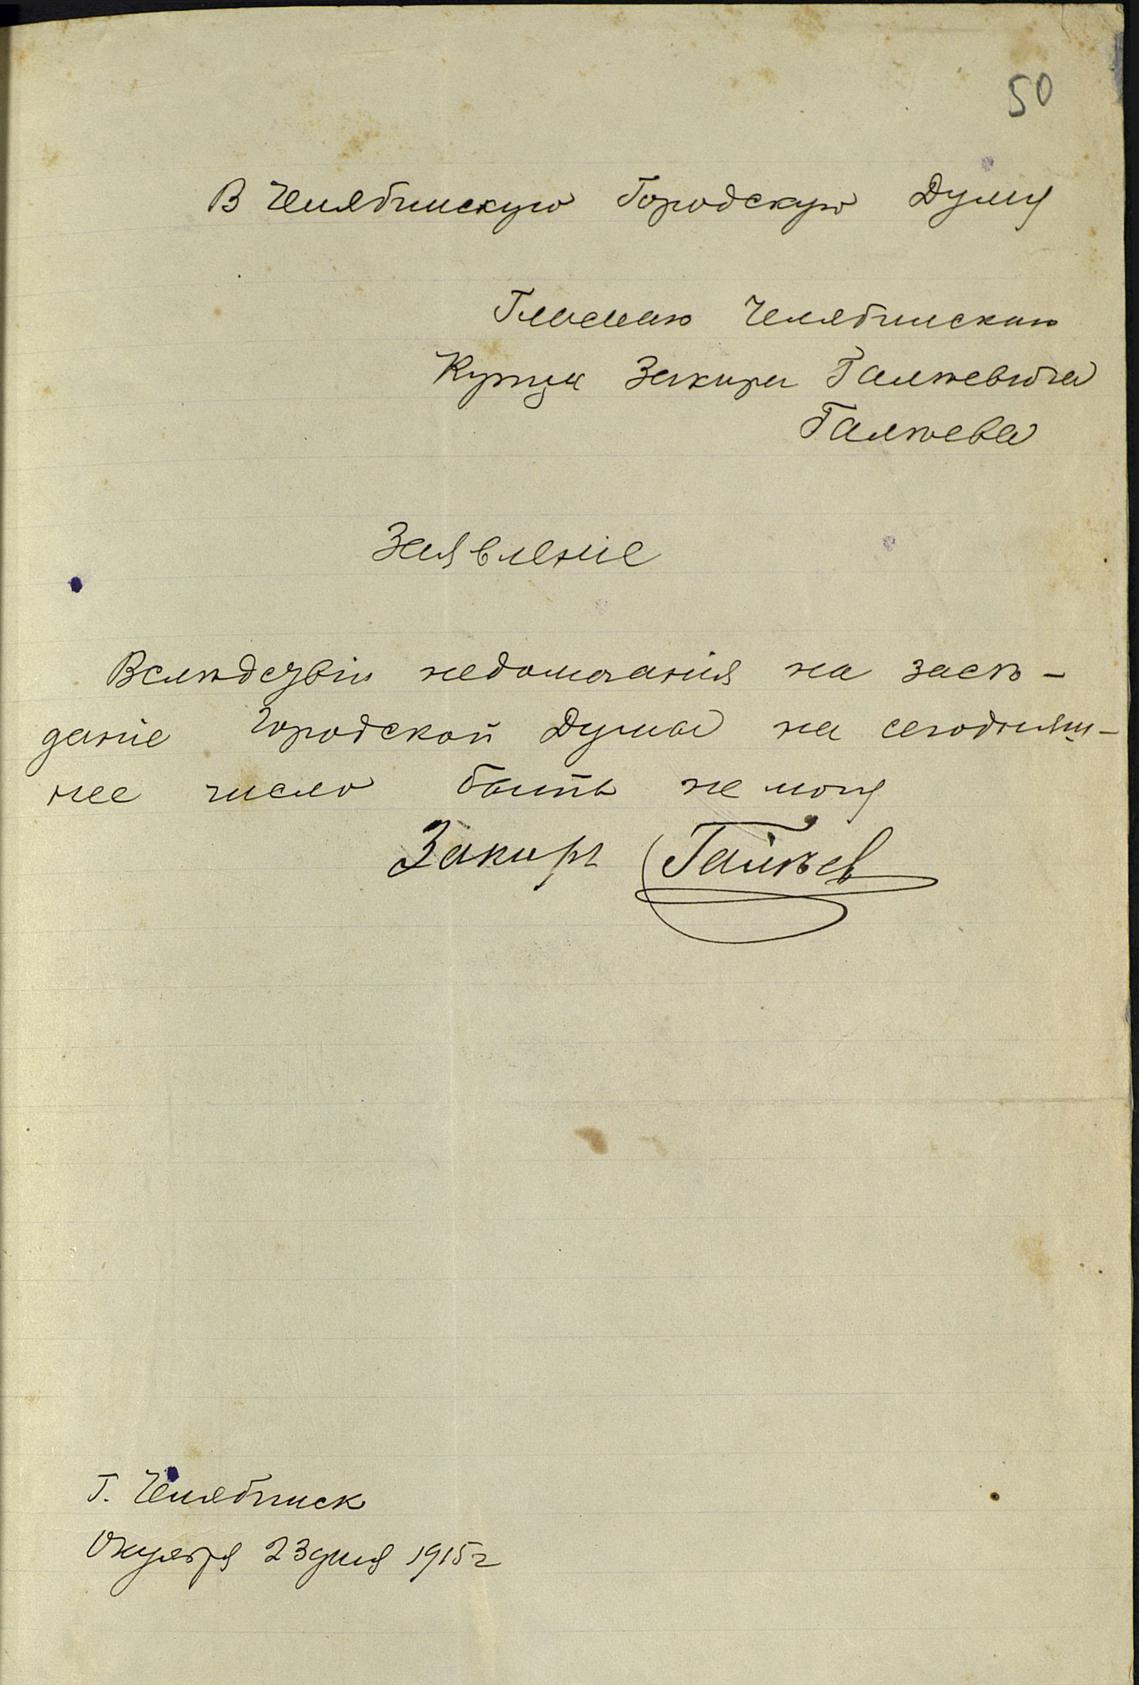 50
В Челябинскую Городскую Думу
Гласнаго Челябинскаго
Купца Закира Галѣевича
Галѣева
Заявленіе
Вслѣдствіи недомаганія на засѣ-
даніе Городской Думы на сегодняш-
нее число быть не могу
Закиръ Галѣев
Г. Челябинск
Октября 23 дня 1915 г